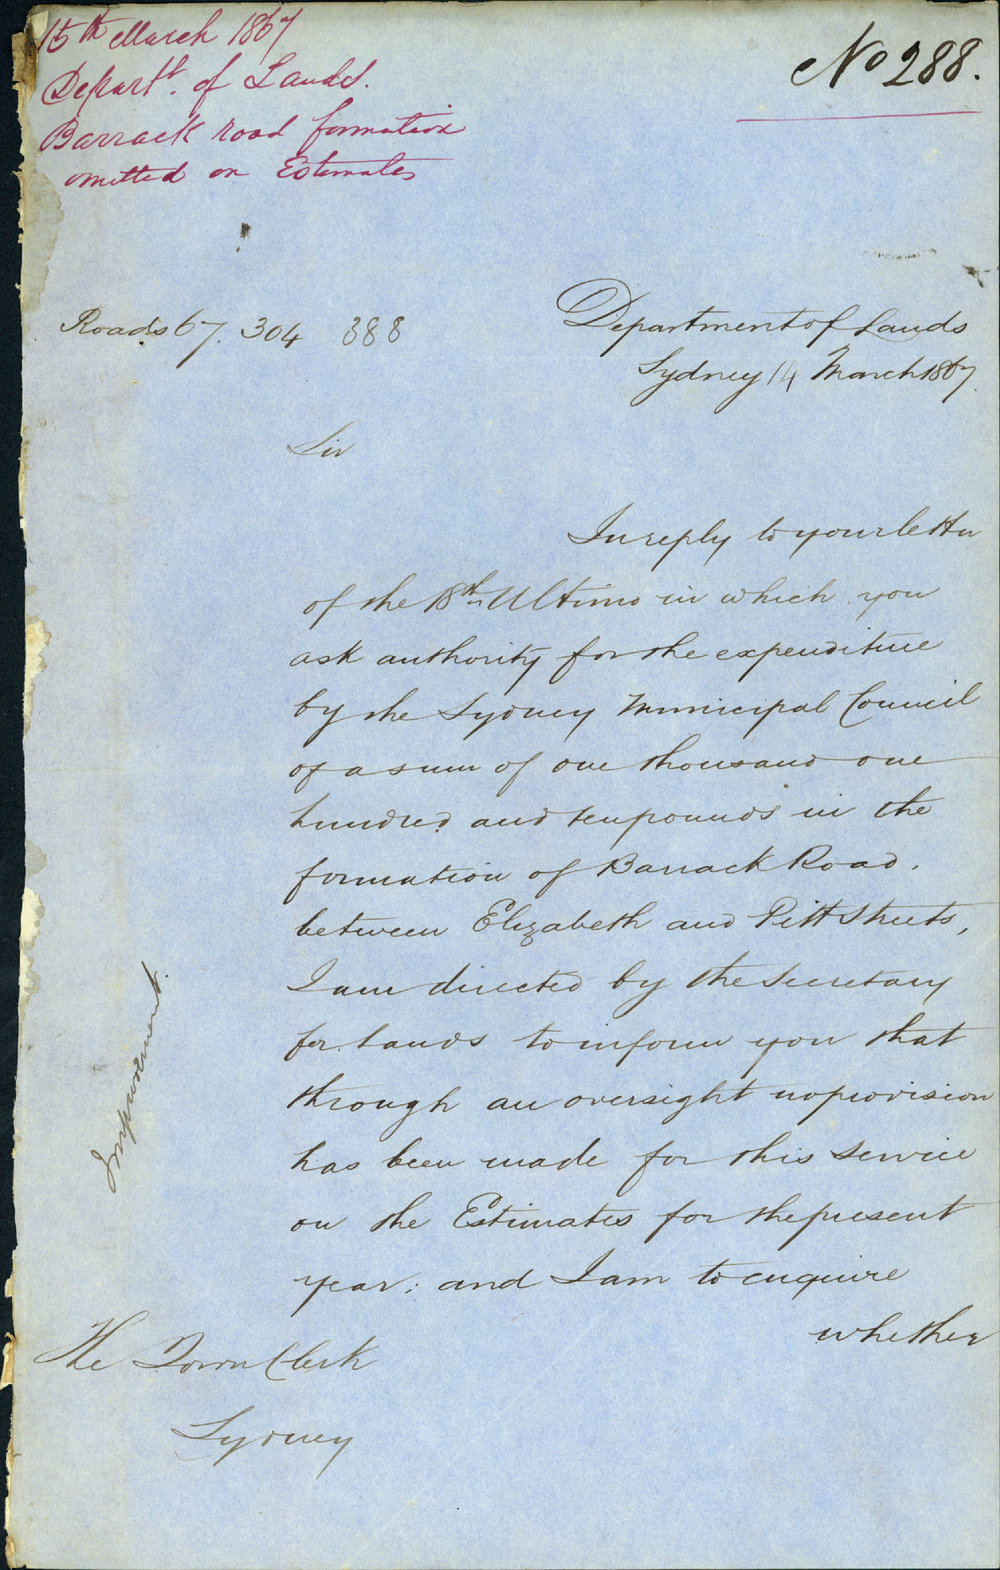 15th March 1867
Depart.t of Lands.
Barrack road formation
omitted on Estimates
No 288.
Roads 67. 304 388
Department of Lands
Sydney 14 March 1867
Sir
In reply to your letter
of the 18th Ultimo in which you
ask authority for the expenditure
by the Sydney Municipal Council
of a sum of one thousand one
hundred and ten pounds in the
formation of Barrack Road,
between Elizabeth and Pitt Streets,
I am directed by the Secretary
for Lands to inform you that
through an oversight no provision
has been made for this service
on the Estimates for the present
year; and I am to enquire
whether
The Town Clerk
Sydney
Improvement.